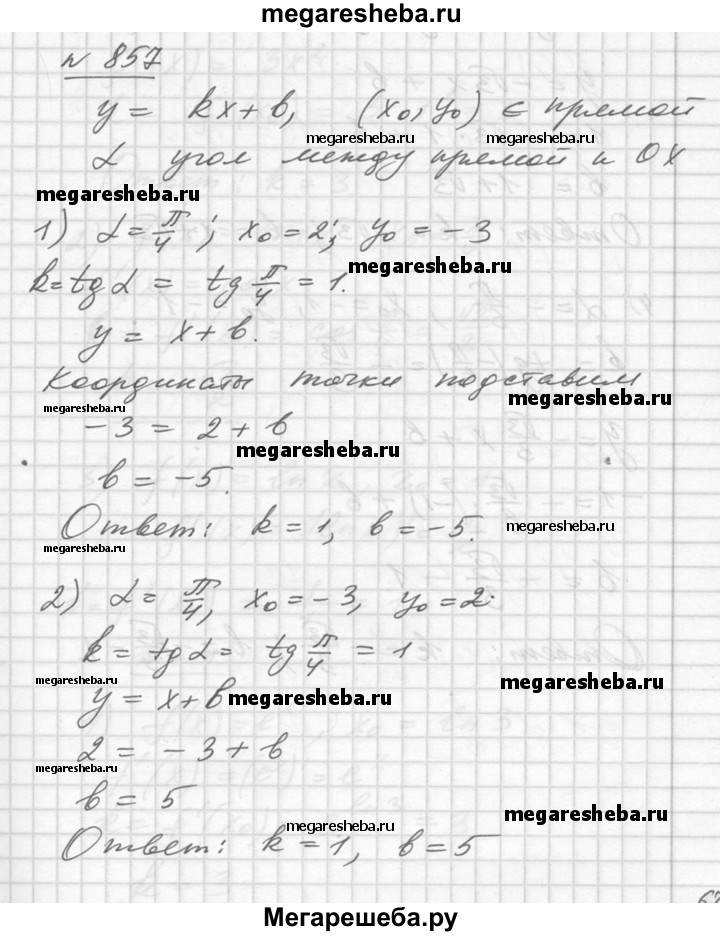 megaresheba.ru
№ 857
y = kx + b, (x₀, y₀) ∈ прямой
megaresheba.ru megaresheba.ru
α угол между прямой и OX
megaresheba.ru
1) α = π/4; x₀ = 2; y₀ = -3
megaresheba.ru
k = tg α = tg π/4 = 1.
y = x + b.
Координаты точки подставим
megaresheba.ru megaresheba.ru
-3 = 2 + b
megaresheba.ru
b = -5.
Ответ: k = 1, b = -5.
megaresheba.ru
megaresheba.ru
2) α = π/4, x₀ = -3, y₀ = 2.
k = tg α = tg π/4 = 1
megaresheba.ru megaresheba.ru
y = x + b
megaresheba.ru
2 = -3 + b
megaresheba.ru
b = 5
megaresheba.ru megaresheba.ru
Ответ: k = 1, b = 5
Мегарешеба.ру